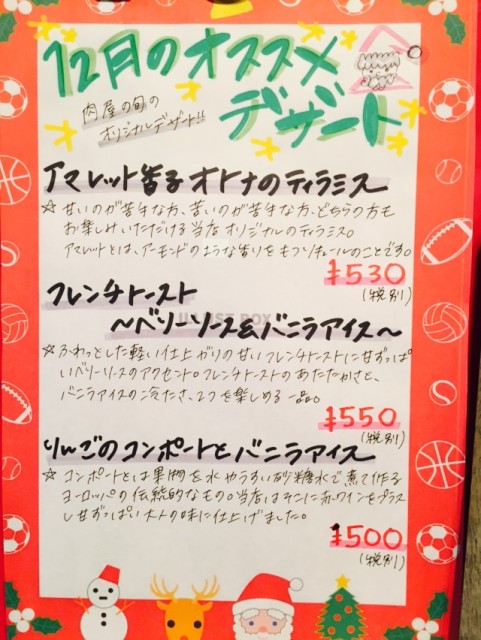 12月のオススメ
デザート
肉屋の旬の
オリジナルデザート!!
アマレット香るオトナのティラミス
☆甘いのが苦手な方、苦いのが苦手な方、どちらの方も
お楽しみいただける当店オリジナルのティラミス。
アマレットとは、アーモンドのような香りをもつリキュールのことです。
¥530
(税別)
フレンチトースト
〜ベリーソース&バニラアイス〜
☆ふわっとした軽い仕上がりの甘いフレンチトーストに甘ずっぱ
いベリーソースのアクセント。フレンチトーストのあたたかさと、
バニラアイスの冷たさ、2つを楽しめる一品。
¥550
(税別)
りんごのコンポートとバニラアイス
☆コンポートとは果物を水やうすい砂糖水で煮て作る
ヨーロッパの伝統的なもの。当店はそこに赤ワインをプラス
し甘ずっぱい大人の味に仕上げました。
¥500
(税別)